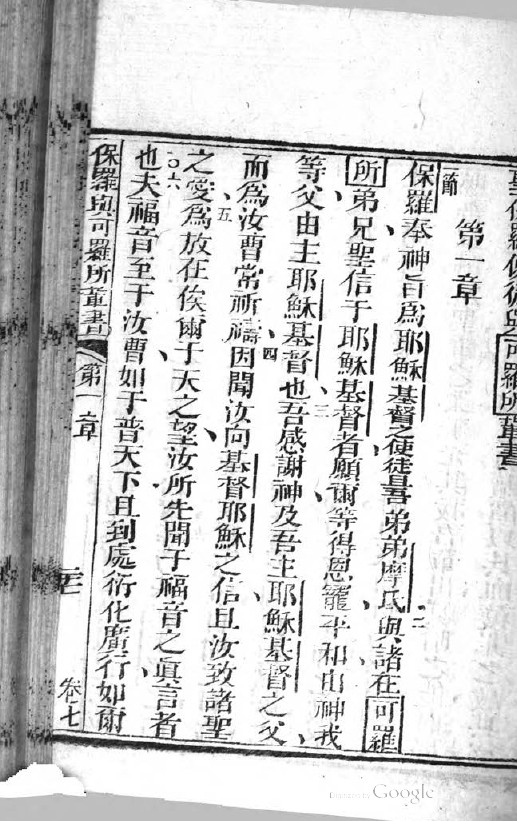 可羅所輩書
第一章
一節
保羅奉神旨爲耶穌基督之使徒且吾弟弟摩氐與諸在可羅
二
所弟兄聖信于耶穌基督者願爾等得恩寵平和由神我
三
等父由主耶穌基督也吾感謝神及吾主耶穌基督之父
四
而爲汝曹常祈禱因聞汝向基督耶穌之信且汝致諸聖
五
之愛爲放在俟爾于天之望汝所先聞于福音之眞言者
六
也夫福音至于汝曹如于普天下且到處衍化廣行如爾
保羅與可羅所輩書
第一章
卷七
Google